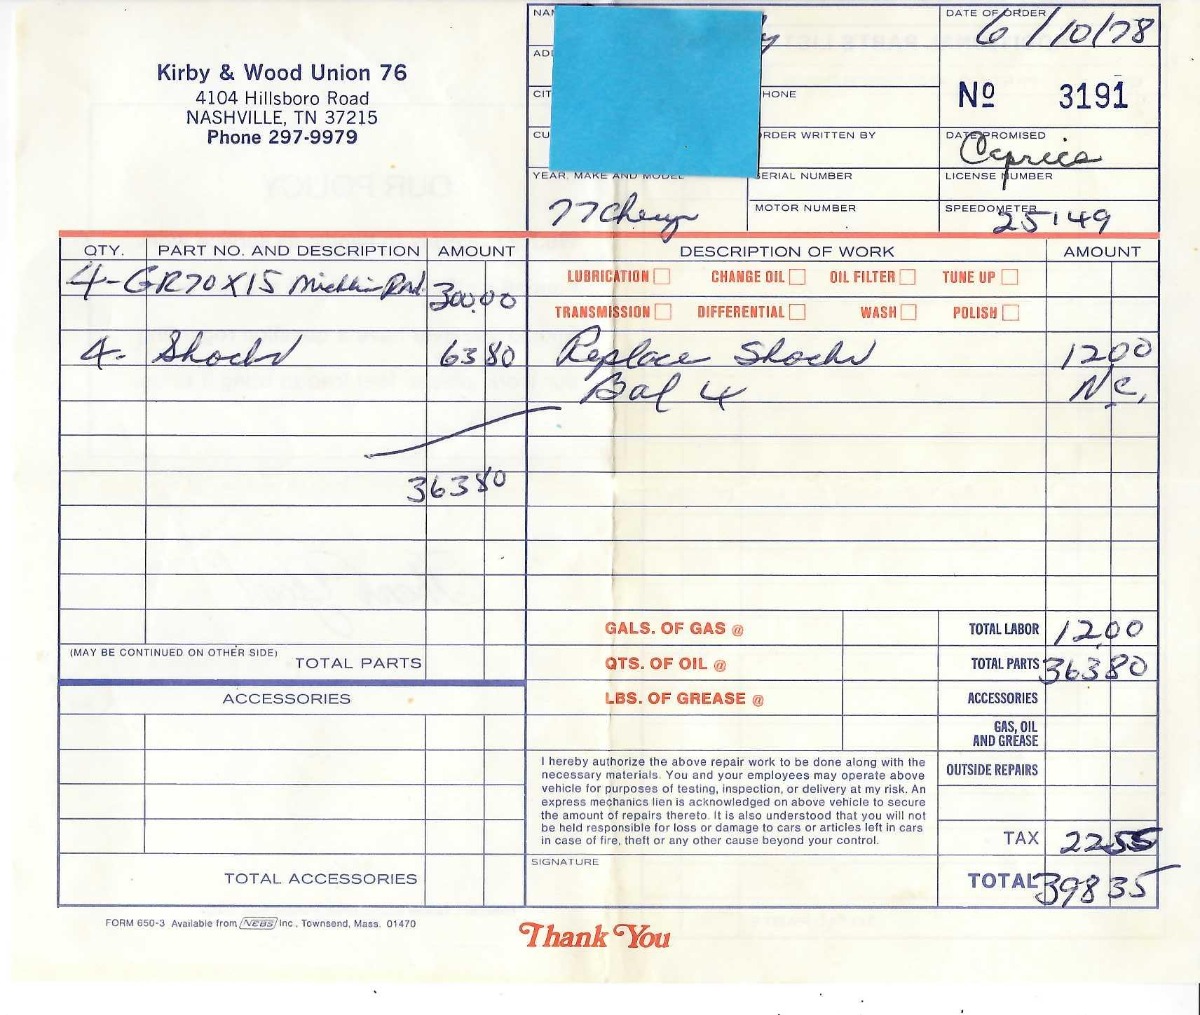 Kirby & Wood Union 76
4104 Hillsboro Road
NASHVILLE, TN 37215
Phone 297-9979
NA
AD
CIT
CU
y
HONE
RDER WRITTEN BY
DATE OF ORDER
6/10/78
No 3191
DATE PROMISED
Caprice
YEAR, MAKE AND MODEL
77 Chevy
SERIAL NUMBER
MOTOR NUMBER
LICENSE NUMBER
SPEEDOMETER
25149
QTY. PART NO. AND DESCRIPTION AMOUNT
4-GR70X15 Michlin Rad. 300.00
4- Shocks 63 80
363 80
(MAY BE CONTINUED ON OTHER SIDE) TOTAL PARTS
ACCESSORIES
TOTAL ACCESSORIES
DESCRIPTION OF WORK AMOUNT
LUBRICATION CHANGE OIL OIL FILTER TUNE UP
TRANSMISSION DIFFERENTIAL WASH POLISH
Replace Shocks 12 00
Bal 4 N.C.
GALS. OF GAS @
QTS. OF OIL @
LBS. OF GREASE @
TOTAL LABOR 12.00
TOTAL PARTS 363 80
ACCESSORIES
GAS, OIL
AND GREASE
OUTSIDE REPAIRS
TAX 22 55
TOTAL 398 35
I hereby authorize the above repair work to be done along with the
necessary materials. You and your employees may operate above
vehicle for purposes of testing, inspection, or delivery at my risk. An
express mechanics lien is acknowledged on above vehicle to secure
the amount of repairs thereto. It is also understood that you will not
be held responsible for loss or damage to cars or articles left in cars
in case of fire, theft or any other cause beyond your control.
SIGNATURE
FORM 650-3 Available from NEBS Inc., Townsend, Mass. 01470
Thank You